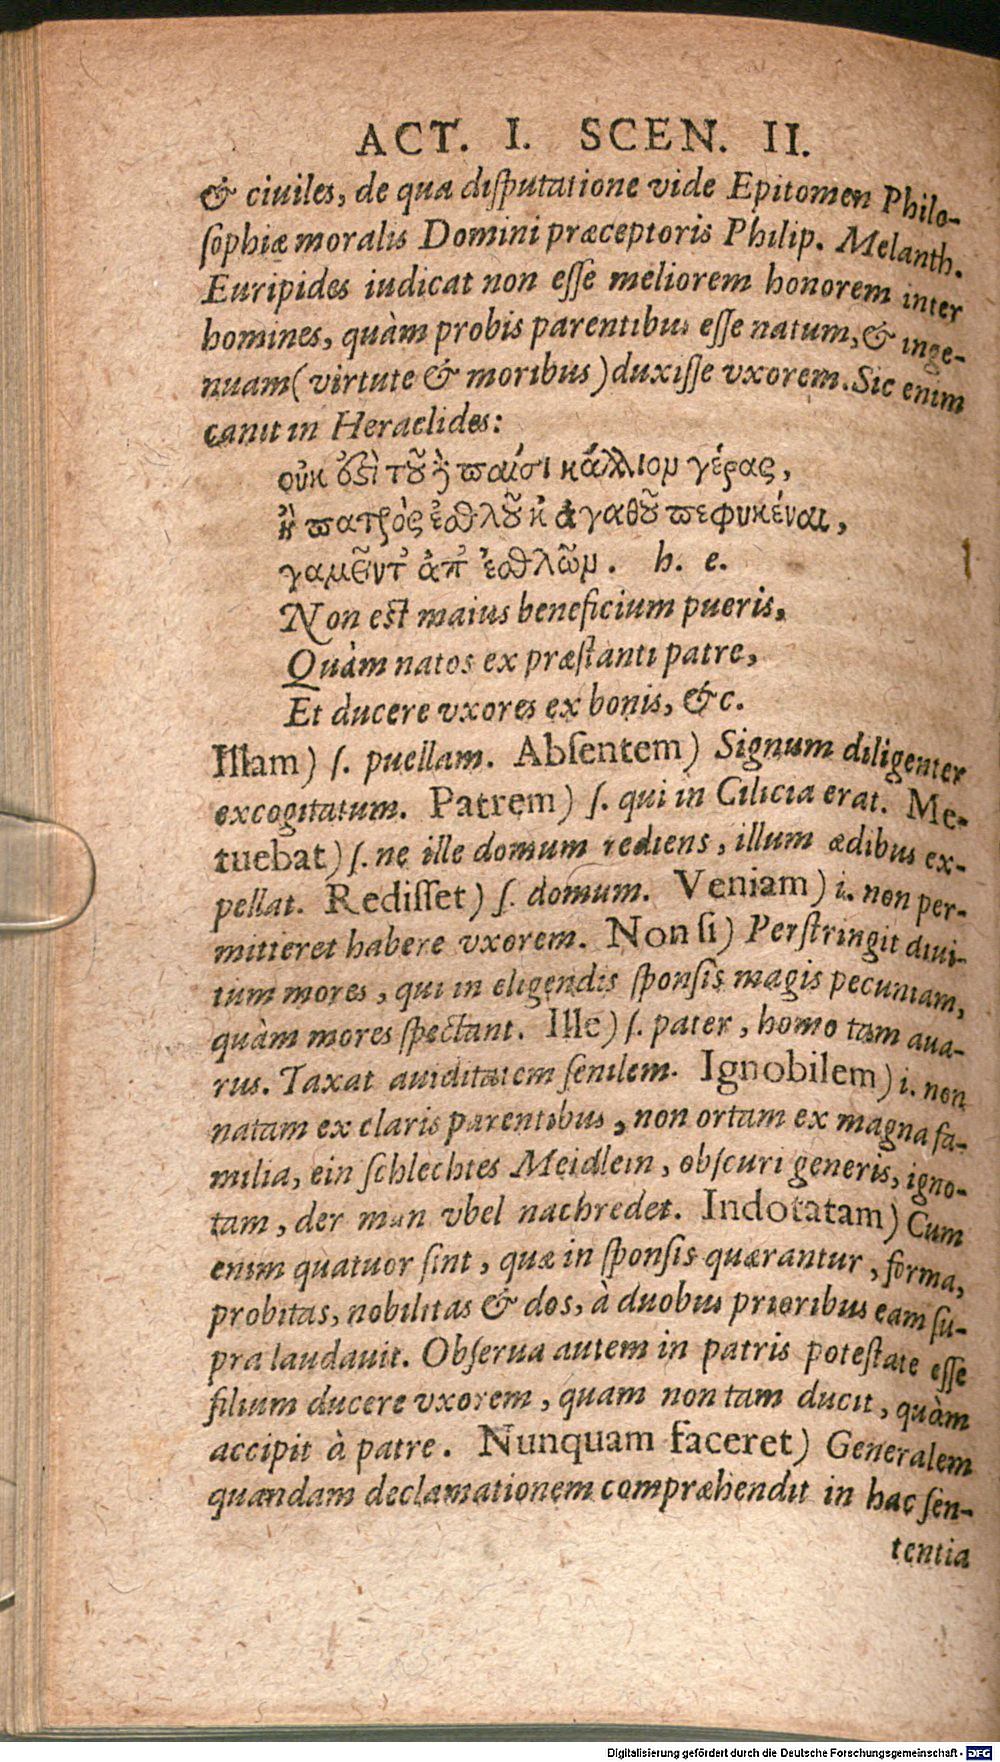 ACT. I. SCEN. II.
& ciuiles, de qua diſputatione vide Epitomen Philo-
ſophiæ moralis Domini præceptoris Philip. Melanth.
Euripides iudicat non eſſe meliorem honorem inter
homines, quàm probis parentibus eſſe natum, & inge-
nuam (virtute & moribus) duxiſſe vxorem. Sic enim
canit in Heraclides:
οὐκ ἔστι τοῦδε παισὶ κάλλιον γέρας,
ἢ πατρὸς ἐσθλοῦ κἀγαθοῦ πεφυκέναι,
γαμεῖν τ' ἀπ' ἐσθλῶν. h. e.
Non est maius beneficium pueris,
Quàm natos ex præſtanti patre,
Et ducere vxores ex bonis, &c.
Illam) ſ. puellam. Abſentem) Signum diligenter
excogitatum. Patrem) ſ. qui in Cilicia erat. Me-
tuebat) ſ. ne ille domum rediens, illum ædibus ex-
pellat. Rediſſet) ſ. domum. Veniam) i. non per-
mitteret habere vxorem. Non ſi) Perſtringit diui-
tum mores, qui in eligendis ſponſis magis pecuniam,
quàm mores ſpectant. Ille) ſ. pater, homo tam aua-
rus. Taxat auiditatem ſenilem. Ignobilem) i. non
natam ex claris parentibus, non ortam ex magna fa-
milia, ein ſchlechtes Meidlein, obſcuri generis, igno-
tam, der man vbel nachredet. Indotatam) Cum
enim quatuor ſint, quæ in ſponſis quærantur, forma,
probitas, nobilitas & dos, à duobus prioribus eam ſu-
pra laudauit. Obſerua autem in patris poteſtate eſſe
filium ducere vxorem, quam non tam ducit, quàm
accipit à patre. Nunquam faceret) Generalem
quandam declamationem compræhendit in hac ſen-
tentia
Digitalisierung gefördert durch die Deutsche Forschungsgemeinschaft - DFG